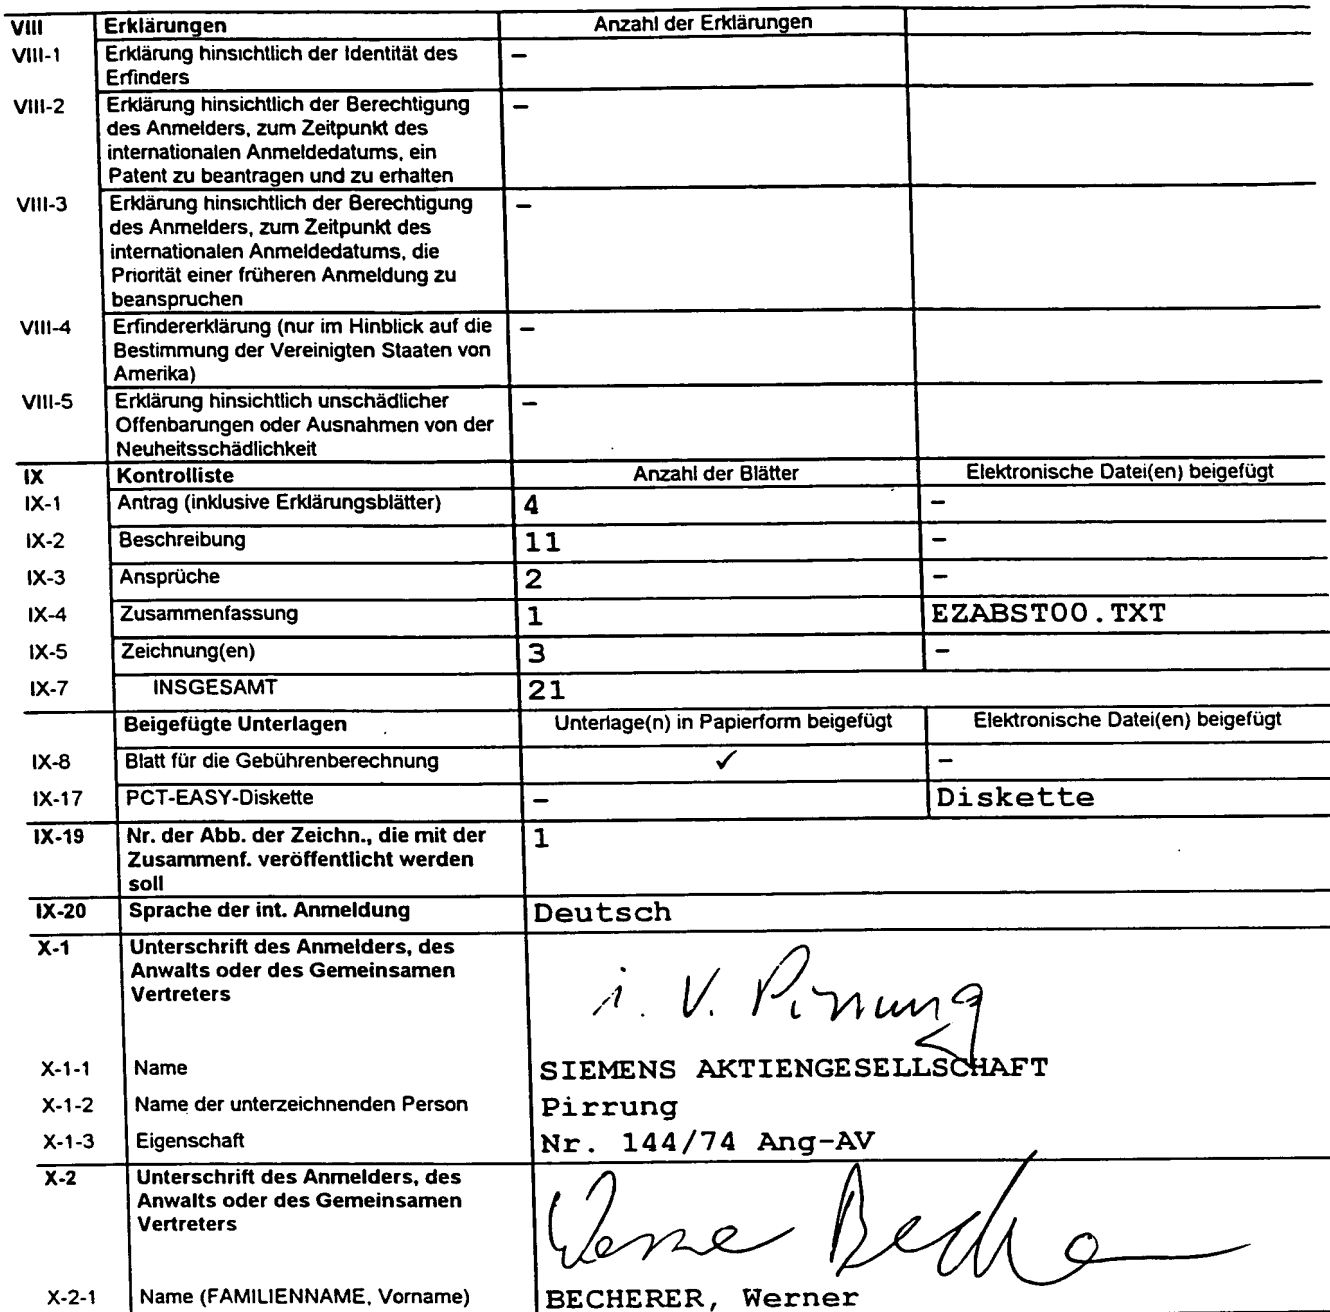 VIII Erklärungen Anzahl der Erklärungen
VIII-1 Erklärung hinsichtlich der Identität des –
Erfinders
VIII-2 Erklärung hinsichtlich der Berechtigung –
des Anmelders, zum Zeitpunkt des
internationalen Anmeldedatums, ein
Patent zu beantragen und zu erhalten
VIII-3 Erklärung hinsichtlich der Berechtigung –
des Anmelders, zum Zeitpunkt des
internationalen Anmeldedatums, die
Priorität einer früheren Anmeldung zu
beanspruchen
VIII-4 Erfindererklärung (nur im Hinblick auf die –
Bestimmung der Vereinigten Staaten von
Amerika)
VIII-5 Erklärung hinsichtlich unschädlicher –
Offenbarungen oder Ausnahmen von der
Neuheitsschädlichkeit
IX Kontrolliste Anzahl der Blätter Elektronische Datei(en) beigefügt
IX-1 Antrag (inklusive Erklärungsblätter) 4 –
IX-2 Beschreibung 11 –
IX-3 Ansprüche 2 –
IX-4 Zusammenfassung 1 EZABST00.TXT
IX-5 Zeichnung(en) 3 –
IX-7 INSGESAMT 21
Beigefügte Unterlagen Unterlage(n) in Papierform beigefügt Elektronische Datei(en) beigefügt
IX-8 Blatt für die Gebührenberechnung ✓ –
IX-17 PCT-EASY-Diskette – Diskette
IX-19 Nr. der Abb. der Zeichn., die mit der 1
Zusammenf. veröffentlicht werden
soll
IX-20 Sprache der int. Anmeldung Deutsch
X-1 Unterschrift des Anmelders, des
Anwalts oder des Gemeinsamen
Vertreters
i. V. Pirrung
X-1-1 Name SIEMENS AKTIENGESELLSCHAFT
X-1-2 Name der unterzeichnenden Person Pirrung
X-1-3 Eigenschaft Nr. 144/74 Ang-AV
X-2 Unterschrift des Anmelders, des
Anwalts oder des Gemeinsamen
Vertreters
Werner Becherer
X-2-1 Name (FAMILIENNAME, Vorname) BECHERER, Werner